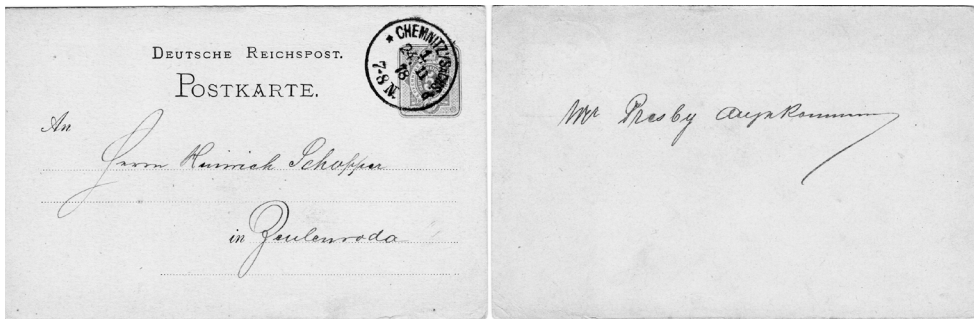 DEUTSCHE REICHSPOST.
POSTKARTE.
* CHEMNITZ/SACHS.
24 11
78
7-8 N.
An
Herrn Heinrich Schopper
in Zeulenroda
Mr Presby angekommen